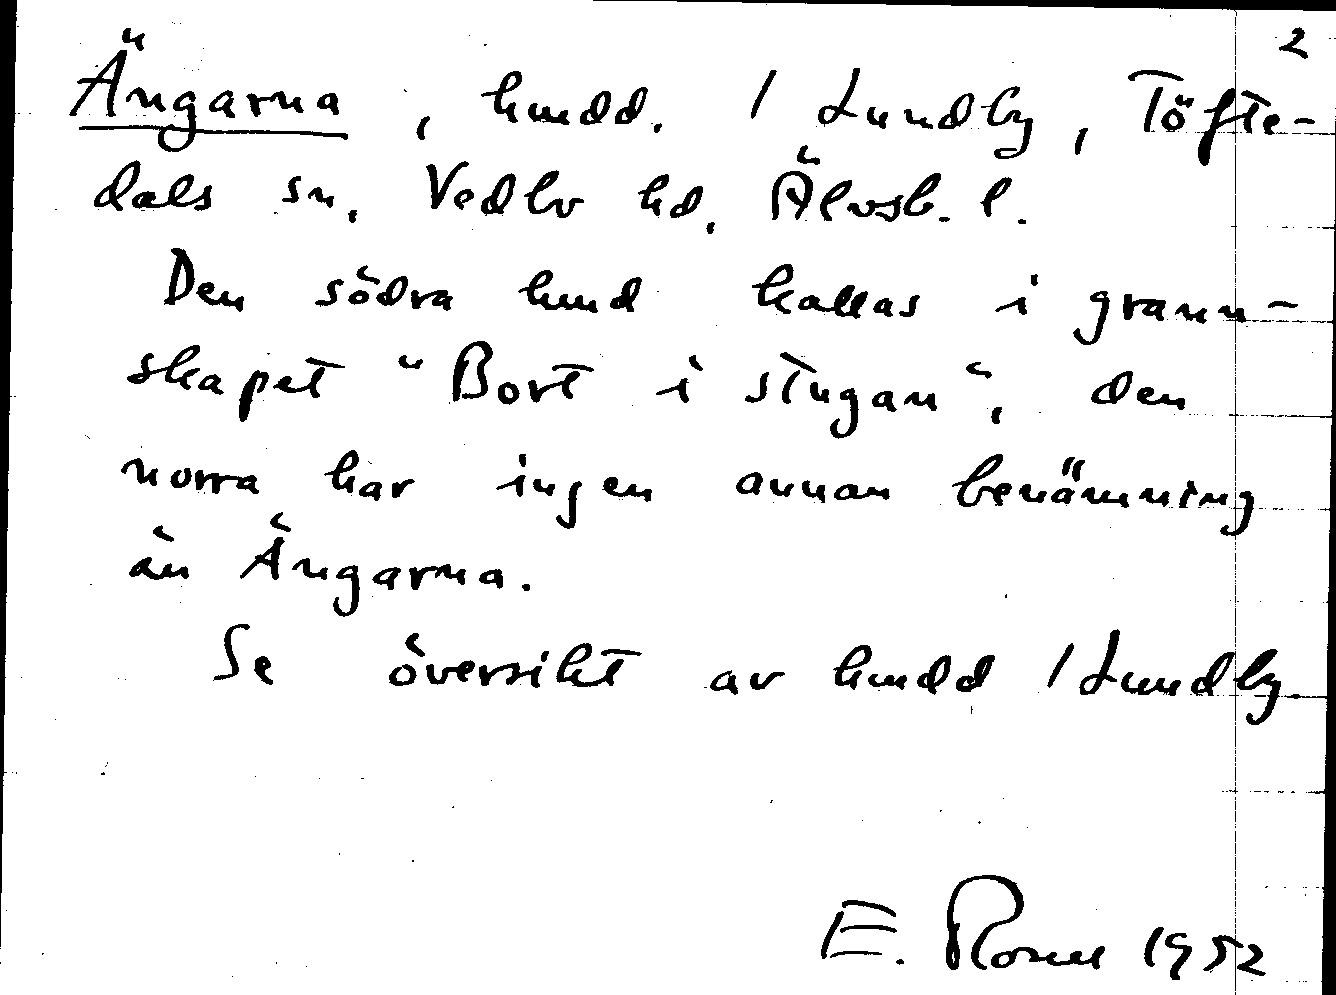 2
Ängarna, hmdd. 1 Lundby, Töfte-
dals sn, Vedbo hd, Älvsb. l.
Den södra hmd kallas i grann-
skapet "Bort i stugan", den
norra har ingen annan benämning
än Ängarna.
Se översikt av hmdd 1 Lundby.
E. 1952